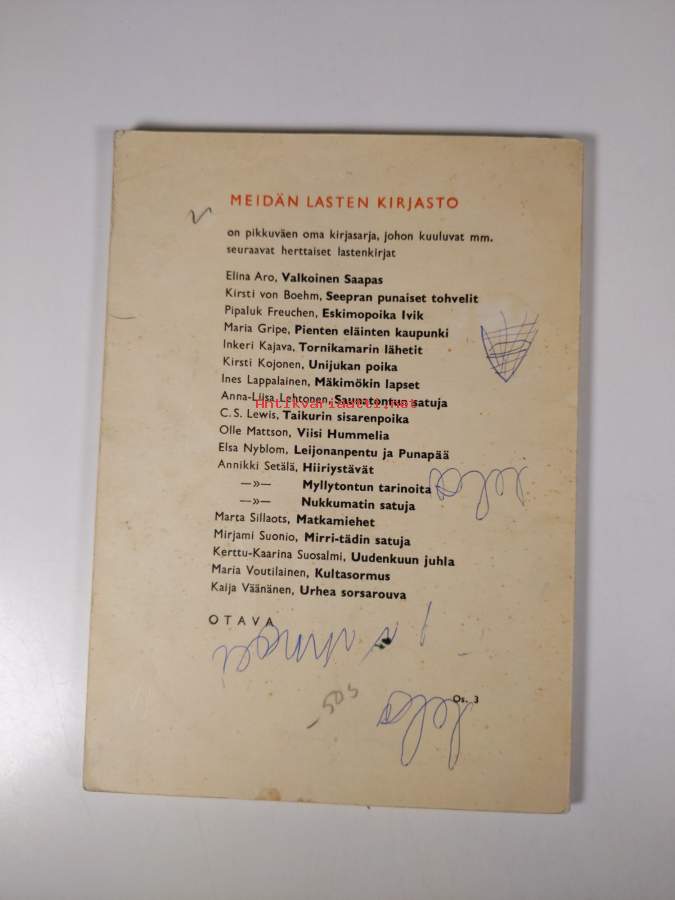 MEIDÄN LASTEN KIRJASTO
on pikkuväen oma kirjasarja, johon kuuluvat mm.
seuraavat herttaiset lastenkirjat
Elina Aro, Valkoinen Saapas
Kirsti von Boehm, Seepran punaiset tohvelit
Pipaluk Freuchen, Eskimopoika Ivik
Maria Gripe, Pienten eläinten kaupunki
Inkeri Kajava, Tornikamarin lähetit
Kirsti Kojonen, Unijukan poika
Ines Lappalainen, Mäkimökin lapset
Anna-Liisa Lehtonen, Saunatontun satuja
Antikvariaatti.net
C.S. Lewis, Taikurin sisarenpoika
Olle Mattson, Viisi Hummelia
Elsa Nyblom, Leijonanpentu ja Punapää
Annikki Setälä, Hiiriystävät
—»— Myllytontun tarinoita
—»— Nukkumatin satuja
Marta Sillaots, Matkamiehet
Mirjami Suonio, Mirri-tädin satuja
Kerttu-Kaarina Suosalmi, Uudenkuun juhla
Maria Voutilainen, Kultasormus
Kaija Väänänen, Urhea sorsarouva
OTAVA
Os. 3